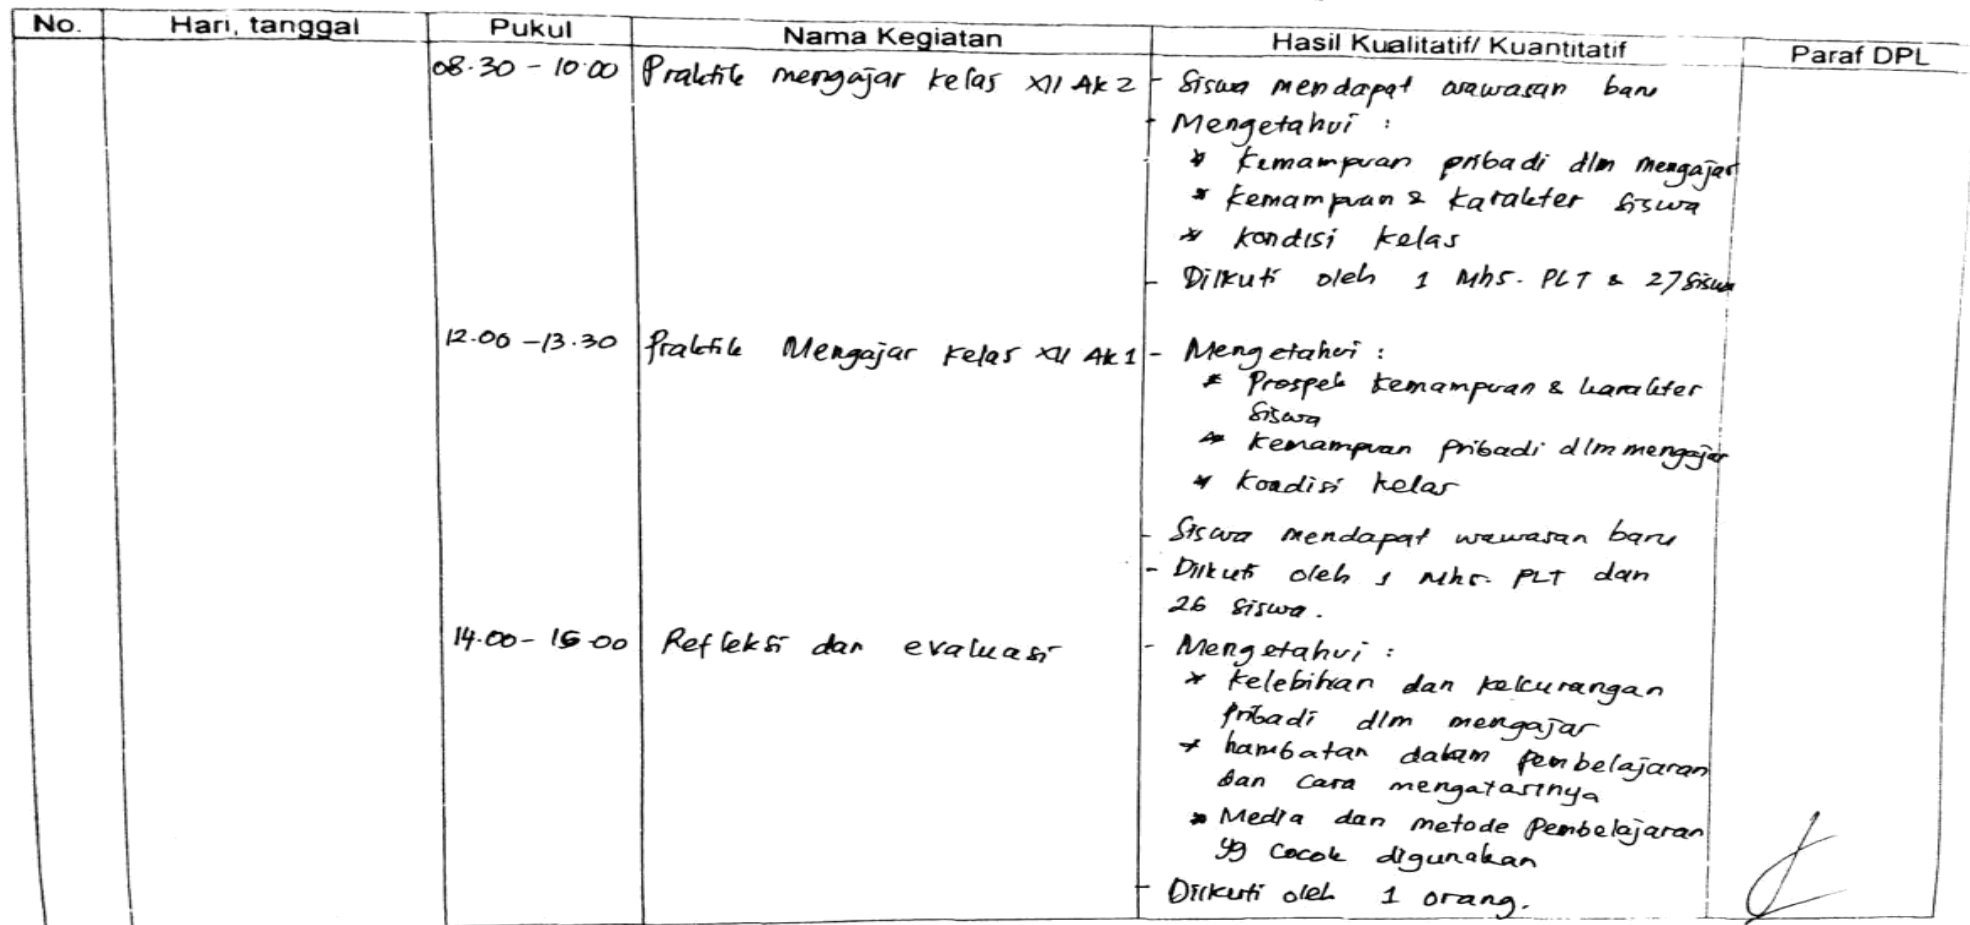 No. Hari, tanggal Pukul Nama Kegiatan Hasil Kualitatif/ Kuantitatif Paraf DPL
08.30 - 10.00 Praktik mengajar kelas XII AK 2 - Siswa mendapat wawasan baru
- Mengetahui :
* kemampuan pribadi dlm mengajar
* kemampuan & karakter siswa
* kondisi kelas
- Diikuti oleh 1 Mhs. PLT & 27 siswa
12.00 - 13.30 Praktik Mengajar kelas XII AK 1 - Mengetahui :
* Prospek kemampuan & karakter
siswa
* kemampuan pribadi dlm mengajar
* kondisi kelas
- Siswa mendapat wawasan baru
- Diikuti oleh 1 Mhs. PLT dan
26 siswa.
14.00 - 15.00 Refleksi dan evaluasi - Mengetahui :
* kelebihan dan kekurangan
pribadi dlm mengajar
* hambatan dalam pembelajaran
dan cara mengatasinya
* Media dan metode pembelajaran
yg cocok digunakan
- Diikuti oleh 1 orang.